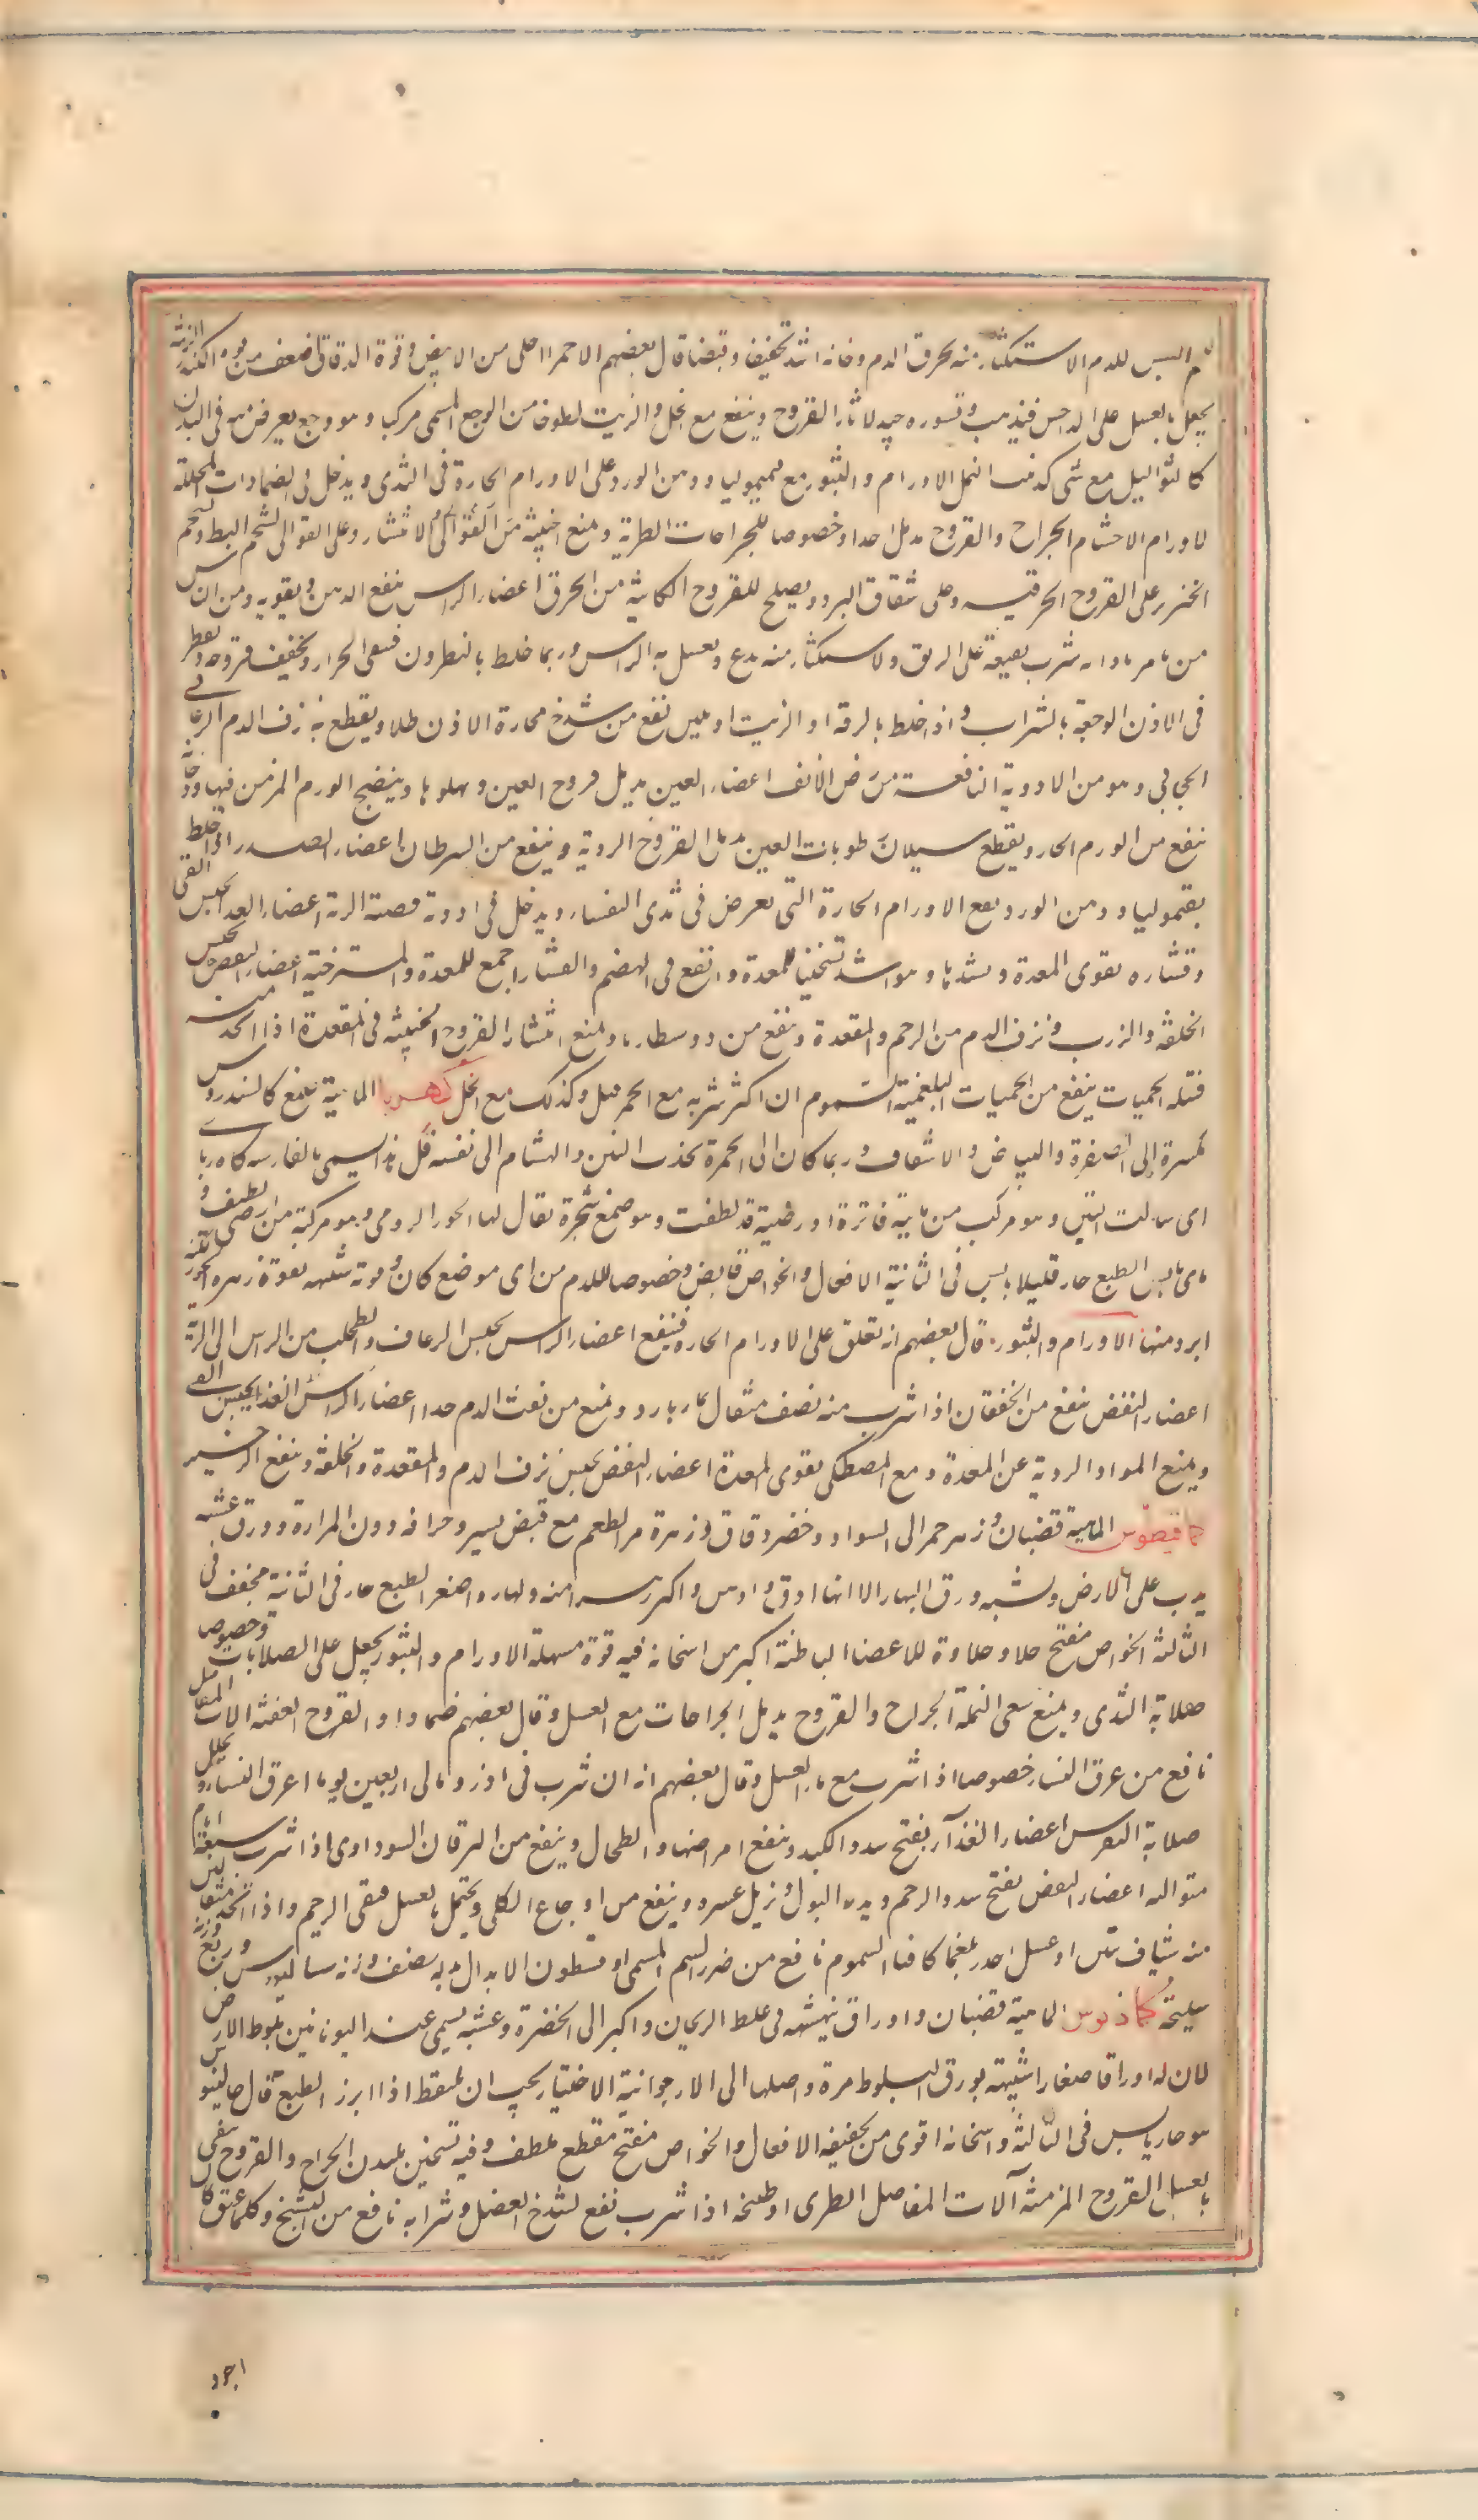 الیس للدم الاستکثار منه یحرق الدم ودخانه اشد تجفیفا وقبضا قال بعضهم الاحمر احلی من الابیض وقوة الدقاق اضعف من قوة الکندر الزینة
یجعل بالعسل علی الداحس فیذهب وقشوره جید لاثار القروح وینفع مع الخل والزیت لطوخا من الوجع المسمی مرکبا وهو وجع یعرض منه فی البدن
کالثوالیل مع شی کدبیب النمل الاورام والبثور مع قیمولیا ودهن الورد علی الاورام الحارة فی الثدی ویدخل فی الضمادات المحللة
لاورام الاحشا الجراح والقروح مدمل جدا وخصوصا للجراحات الطریة ویمنع الخبیثة من الانتشار وعلی القوابی بشحم البط وبشحم
الخنزیر علی القروح الحرقیه وعلی شقاق البرد ویصلح للقروح الکائنة من الحرق اعضاء الراس ینفع الذهن ویقویه ومن الناس
من یامر بادمانه شرب نقیعه علی الریق والاستکثار منه یصدع ویغسل به الراس وربما خلط بالنطرون فینقی الحزاز ویجفف قروحه ویقطر
فی الاذن الوجعة بالشراب واذا خلط بالزفت او الزیت او بلبن نفع من شدخ محارة الاذن طلا ویقطع نزف الدم الرعافی
الحجابی وهو من الادویة النافعة من رض الانف اعضاء العین یدمل قروح العین ویملوها وینضج الورم المزمن فیها ودخانه
ینفع من الورم الحار ویقطع سیلان رطوبات العین ویدمل القروح الردیة وینفع من السرطان اعضاء الصدر اذا خلط
بقیمولیا ودهن الورد نفع الاورام الحارة التی تعرض فی ثدی النفساء ویدخل فی ادویة قصبة الریة اعضاء الغذا یحبس القی
وقشاره یقوی المعدة ویشدها وهو اشد تسخینا للمعدة وانفع فی الهضم والقشار اجمع للمعدة والمسترخیة اعضاء النفض یحبس
الخلفة والذرب ونزف الدم من الرحم والمقعدة وینفع من دوسنطاریا ویمنع انتشار القروح الخبیثة فی المقعدة اذا اتخذ منه
فتیلة الحمیات ینفع من الحمیات البلغمیة السموم ان اکثر شربه مع الخمر قتل وکذلک مع الخل کهربا الماهیة صمغ کالسندروس
مکسره الی الصفرة والبیاض والاشفاف وربما کان الی الحمرة یجذب التبن والهشام الی نفسه فلذلک یسمی بالفارسیة کاه ربا
ای سالب التبن وهو مرکب من مایة فاترة وارضیة قد لطفت وهو صمغ شجرة یقال لها الحور الرومی وهو مرکبة من ارضی لطیف و
مای یابس الطبع حار قلیلا یابس فی الثانیة الافعال والخواص قابض وخصوصا للدم من ای موضع کان وقوته شبیهة بقوة زهرة الحور لکنه
ابرد منها الاورام والبثور قال بعضهم انه تعلق علی الاورام الحارة فینفع اعضاء الراس یحبس الرعاف والتحلب من الراس الی الریة
اعضاء النفض ینفع من الخفقان اذا شرب منه نصف مثقال بماء بارد ویمنع من نفث الدم جدا اعضاء الراس الغذا یحبس القی
ویمنع المواد الردیة عن المعدة ومع المصطکی یقوی المعدة اعضاء النفض یحبس نزف الدم والمقعدة والخلفة وینفع الزحیر
کمافیطوس الماهیة قضبان وزهر حمر الی السواد وخضر دقاق وزهرة مر الطعم مع قبض یسیر وحرافه ودون المرارة وورق عشبه
یدب علی الارض ویشبه ورق البهار الا انها ادق واکثر زهرا منه وبهاره اصفر الطبع حار فی الثانیة مجفف فی
الثالثة الخواص مفتح جلا وجلاوة للاعضا الباطنة اکثر من اسخانه فیه قوة مسهلة الاورام والبثور یجعل علی الصلابات وخصوصا
صلابة الثدی ویمنع سعی النملة الجراح والقروح یدمل الجراحات مع العسل وقال بعضهم ضمادا والقروح العفنة الات المفاصل
نافع من عرق النساء خصوصا اذا شرب مع ماء العسل وقال بعضهم انه ان شرب فی ادرومالی اربعین یوما ابرا عرق النساء ویحلل
صلابة النقرس اعضاء الغذاء یفتح سدد الکبد وینفع امراضها والطحال وینفع من الیرقان السوداوی اذا شرب سبعة ایام
متوالیه اعضاء النفض یفتح سدد الرحم ویدر البول ویزیل عسره وینفع من اوجاع الکلی ویحتمل بعسل فینقی الرحم واذا اتخذ
منه شیاف بتین او عسل احدر بلغما کافیا السموم نافع من ضرر السم المسمی اوفسطون الابدال بدله نصف وزنه سسالیوس وربع وزنه
سلیخة کماذریوس الماهیة قضبان واوراق یشبه فی غلظ الریحان واکبر الی الخضرة وعشبه یسمی عند الیونانیین بلوط الارض
لان له اوراقا صغارا شبیهة بورق البلوط مرة واصلها الی الارجوانیة الاختیار یجب ان یلتقط اذا ابرز الطبع قال جالینوس
هو حار یابس فی الثالثة واسخانه اقوی من تجفیفه الافعال والخواص مفتح مقطع ملطف وفیه تسخین للبدن الجراح والقروح ینقی
بالعسل القروح المزمنة آلات المفاصل الطری او طبیخه اذا شرب نفع لشدخ العضل وشرابه نافع من التشنج وکلما عتق کان
اجود